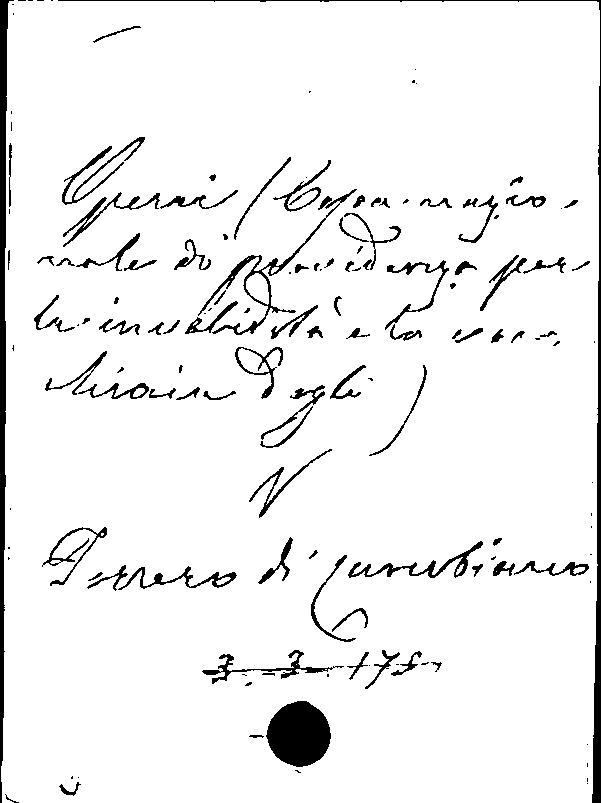 Operai (Cassa nazio-
nale di previdenza per
la invalidità e la vec-
chiaia degli)
V
Ferrero di Cambiano
3. 3. 175